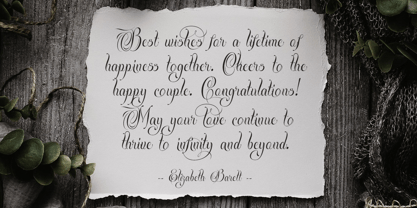 Best wishes for a lifetime of
happiness together. Cheers to the
happy couple. Congratulations!
May your love continue to
thrive to infinity and beyond.
-- Elizabeth Barett --